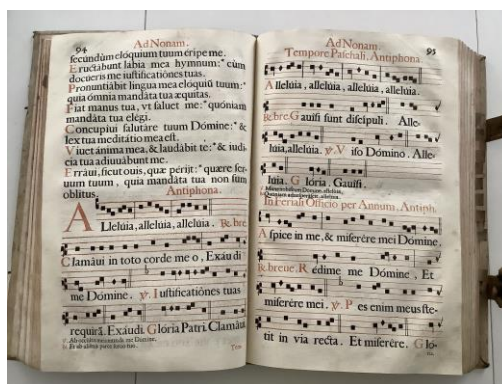 94
Ad Nonam.
secundùm elóquium tuum éripe me.
Eructábunt labia mea hymnum: * cùm
docueris me iustificatiónes tuas.
Pronuntiábit lingua mea elóquiũ tuum: *
quia ómnia mandáta tua æquitas.
Fiat manus tua, vt saluet me: * quóniam
mandáta tua elégi.
Concupiui salutáre tuum Dómine: * &
lex tua meditátio mea est.
Viuet ánima mea, & laudábit te: * & iudi-
cia tua adiuuábunt me.
Erráui, sicut ouis, quæ périjt: * quære ser-
uum tuum, quia mandáta tua non sum
oblitus.
Antiphona.
ALleluia, alleluia, alleluia. R. bre.
Clamáui in toto corde meo, Exáudi
me Dómine. V. Iustificatiónes tuas
requirã. Exáudi. Glória Patri. Clamáui
Ad Nonam.
95
Tempore Paschali. Antiphona.
Alleluia, alleluia, alleluia, alleluia.
R. bre. Gauisi sunt discipuli. Alle-
luia, alleluia. V. Viso Dómino. Alle-
luia. Glória. Gauisi.
In Feriali Officio per Annum, Antiph.
Aspice in me, & miserére mei Dómine.
R. breue. Redime me Dómine, Et
miserére mei. V. Pes enim meus ste-
tit in via recta. Et miserére. Glo-